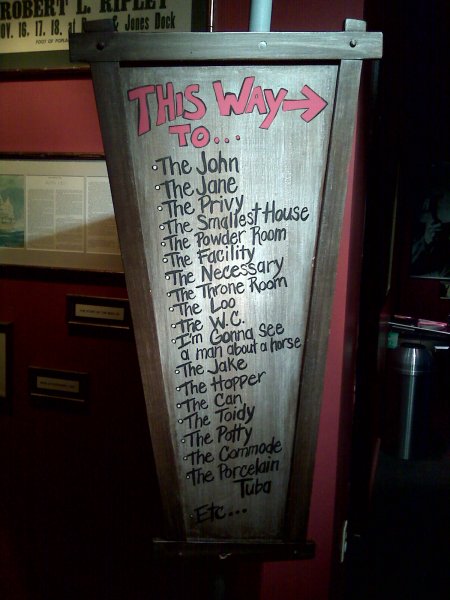 ROBERT L. RIPLEY
NOV. 16. 17. 18. at & Jones Dock
THIS WAY→
TO...
The John
The Jane
The Privy
The Smallest House
The Powder Room
The Facility
The Necessary
The Throne Room
The Loo
The W.C.
I'm Gonna See
a man about a horse
The Jake
The Hopper
The Can
The Toidy
The Potty
The Commode
The Porcelain
Tuba
Etc...